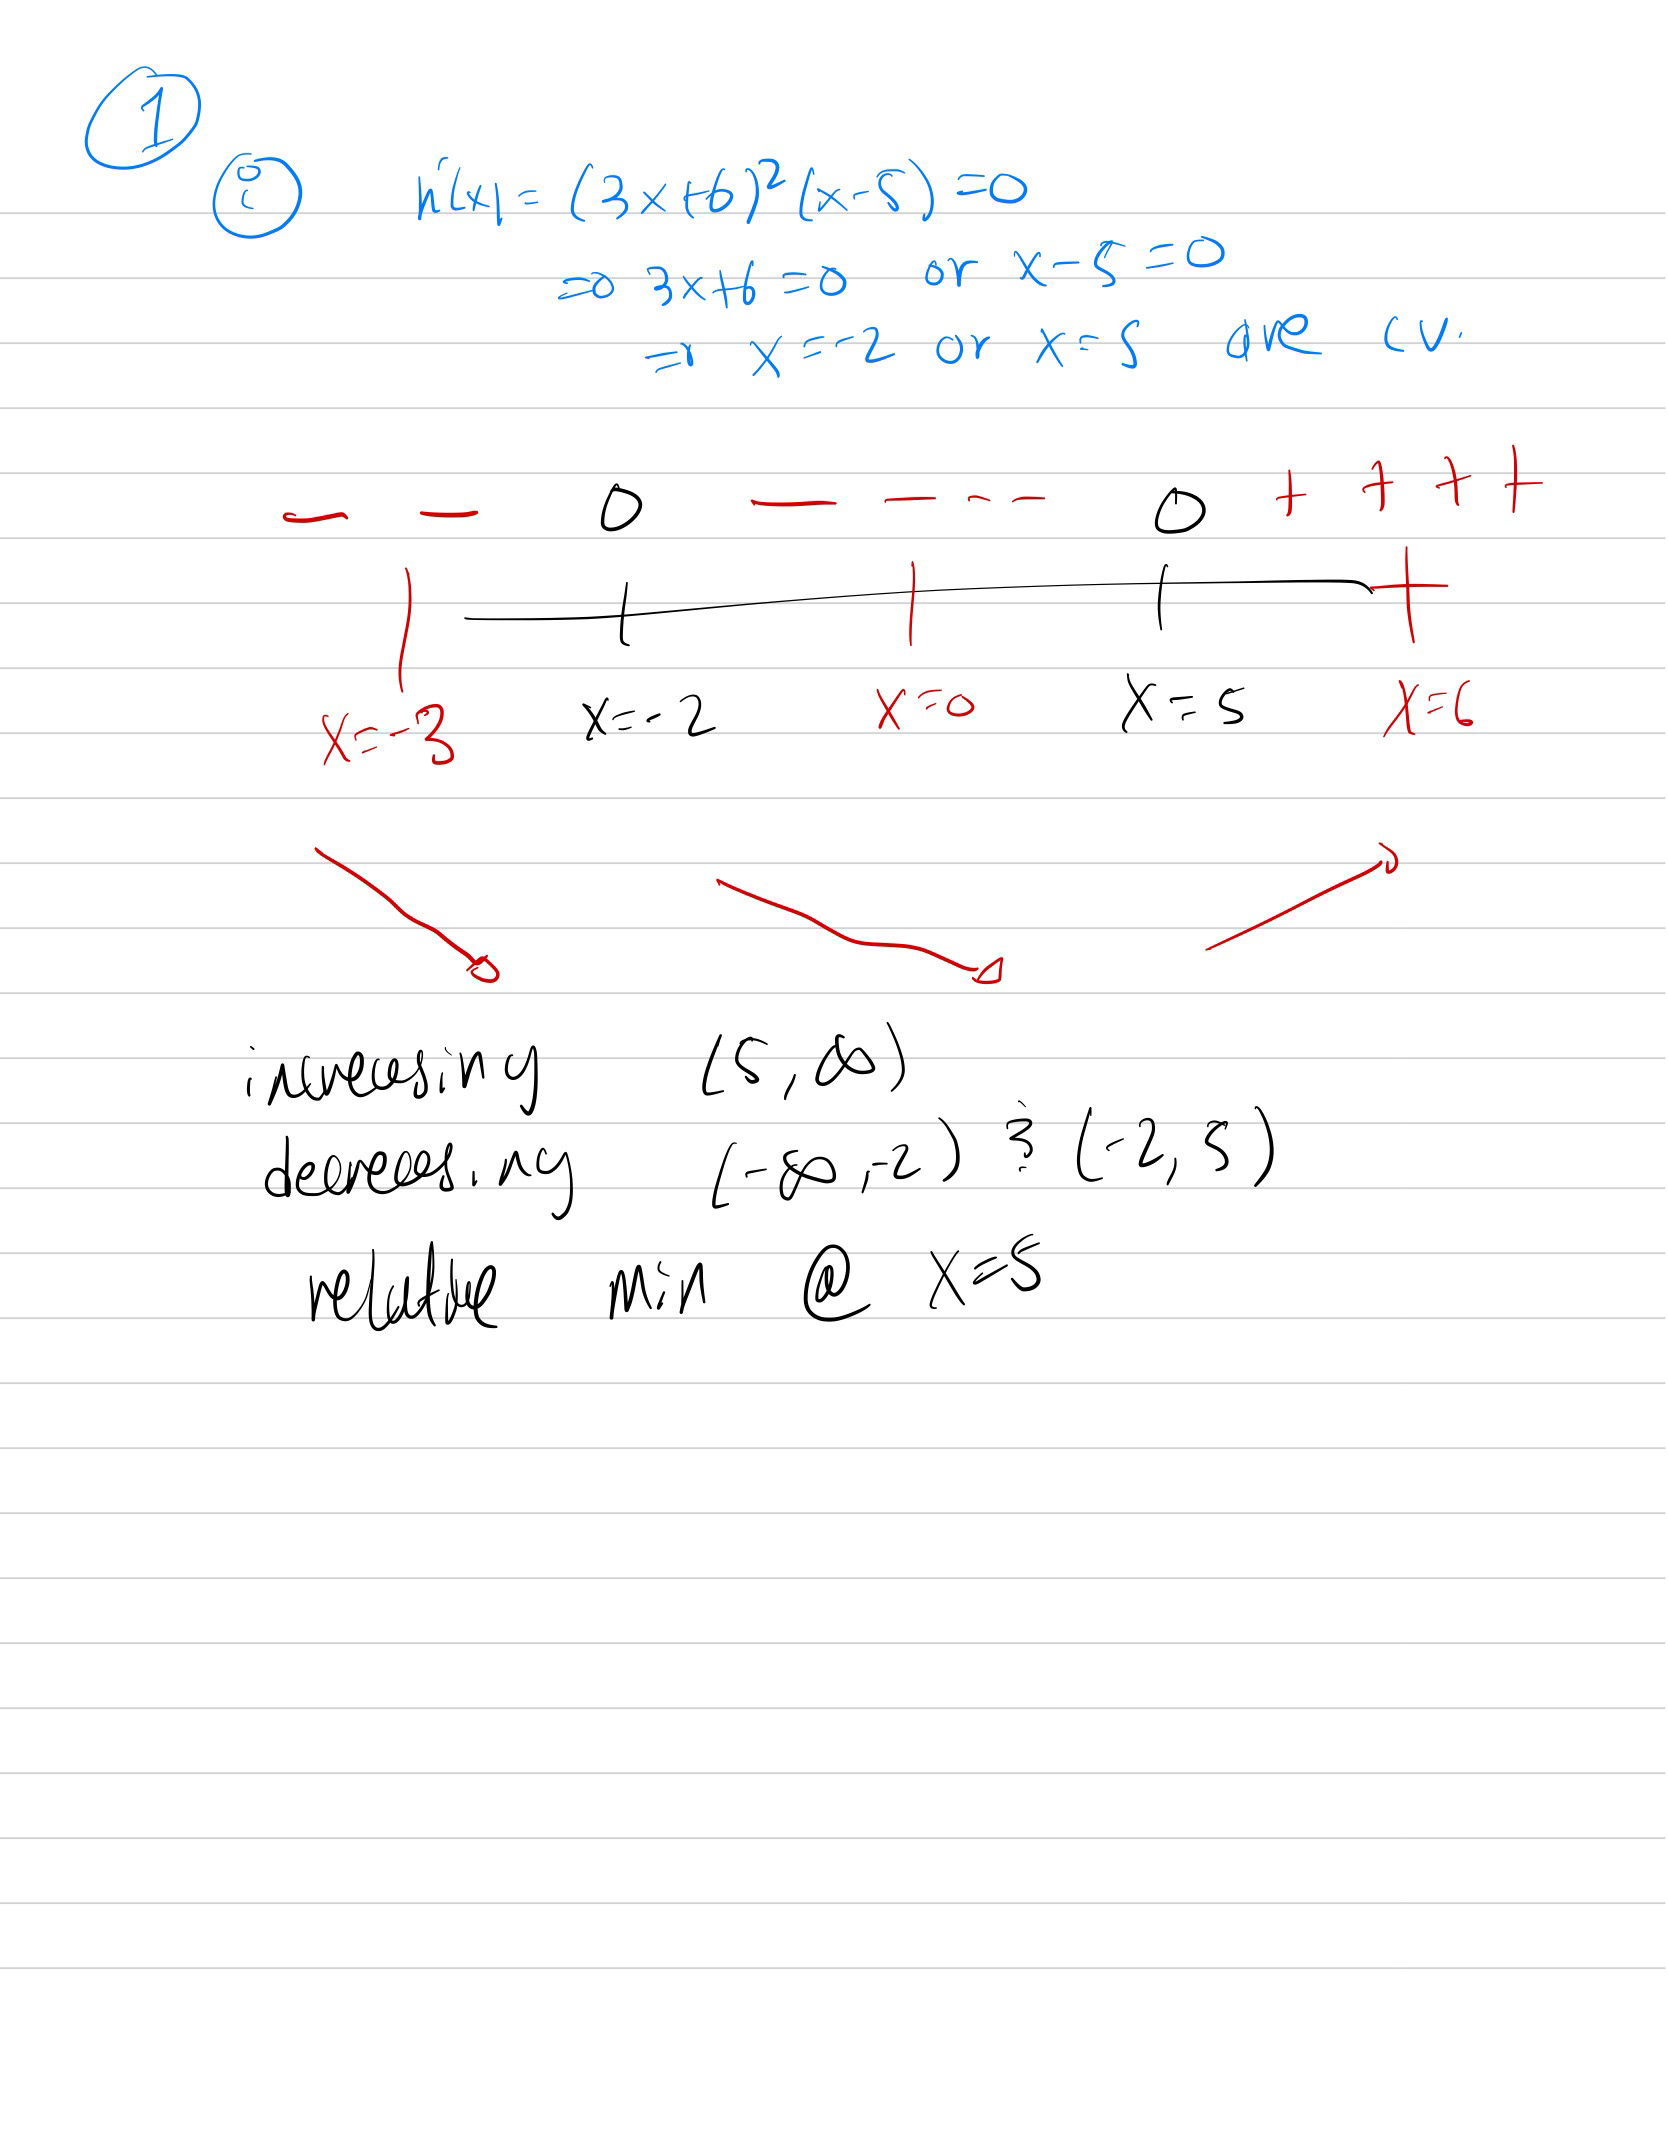 1
i h'(x) = (3x+6)²(x-5) = 0
⇒ 3x+6 = 0 or x-5 = 0
⇒ x = -2 or x = 5 are cv.
— — 0 — — - - 0 + + + +
x=-3 x=-2 x=0 x=5 x=6
increasing (5, ∞)
decreasing (-∞, -2) & (-2, 5)
relative min @ x=5